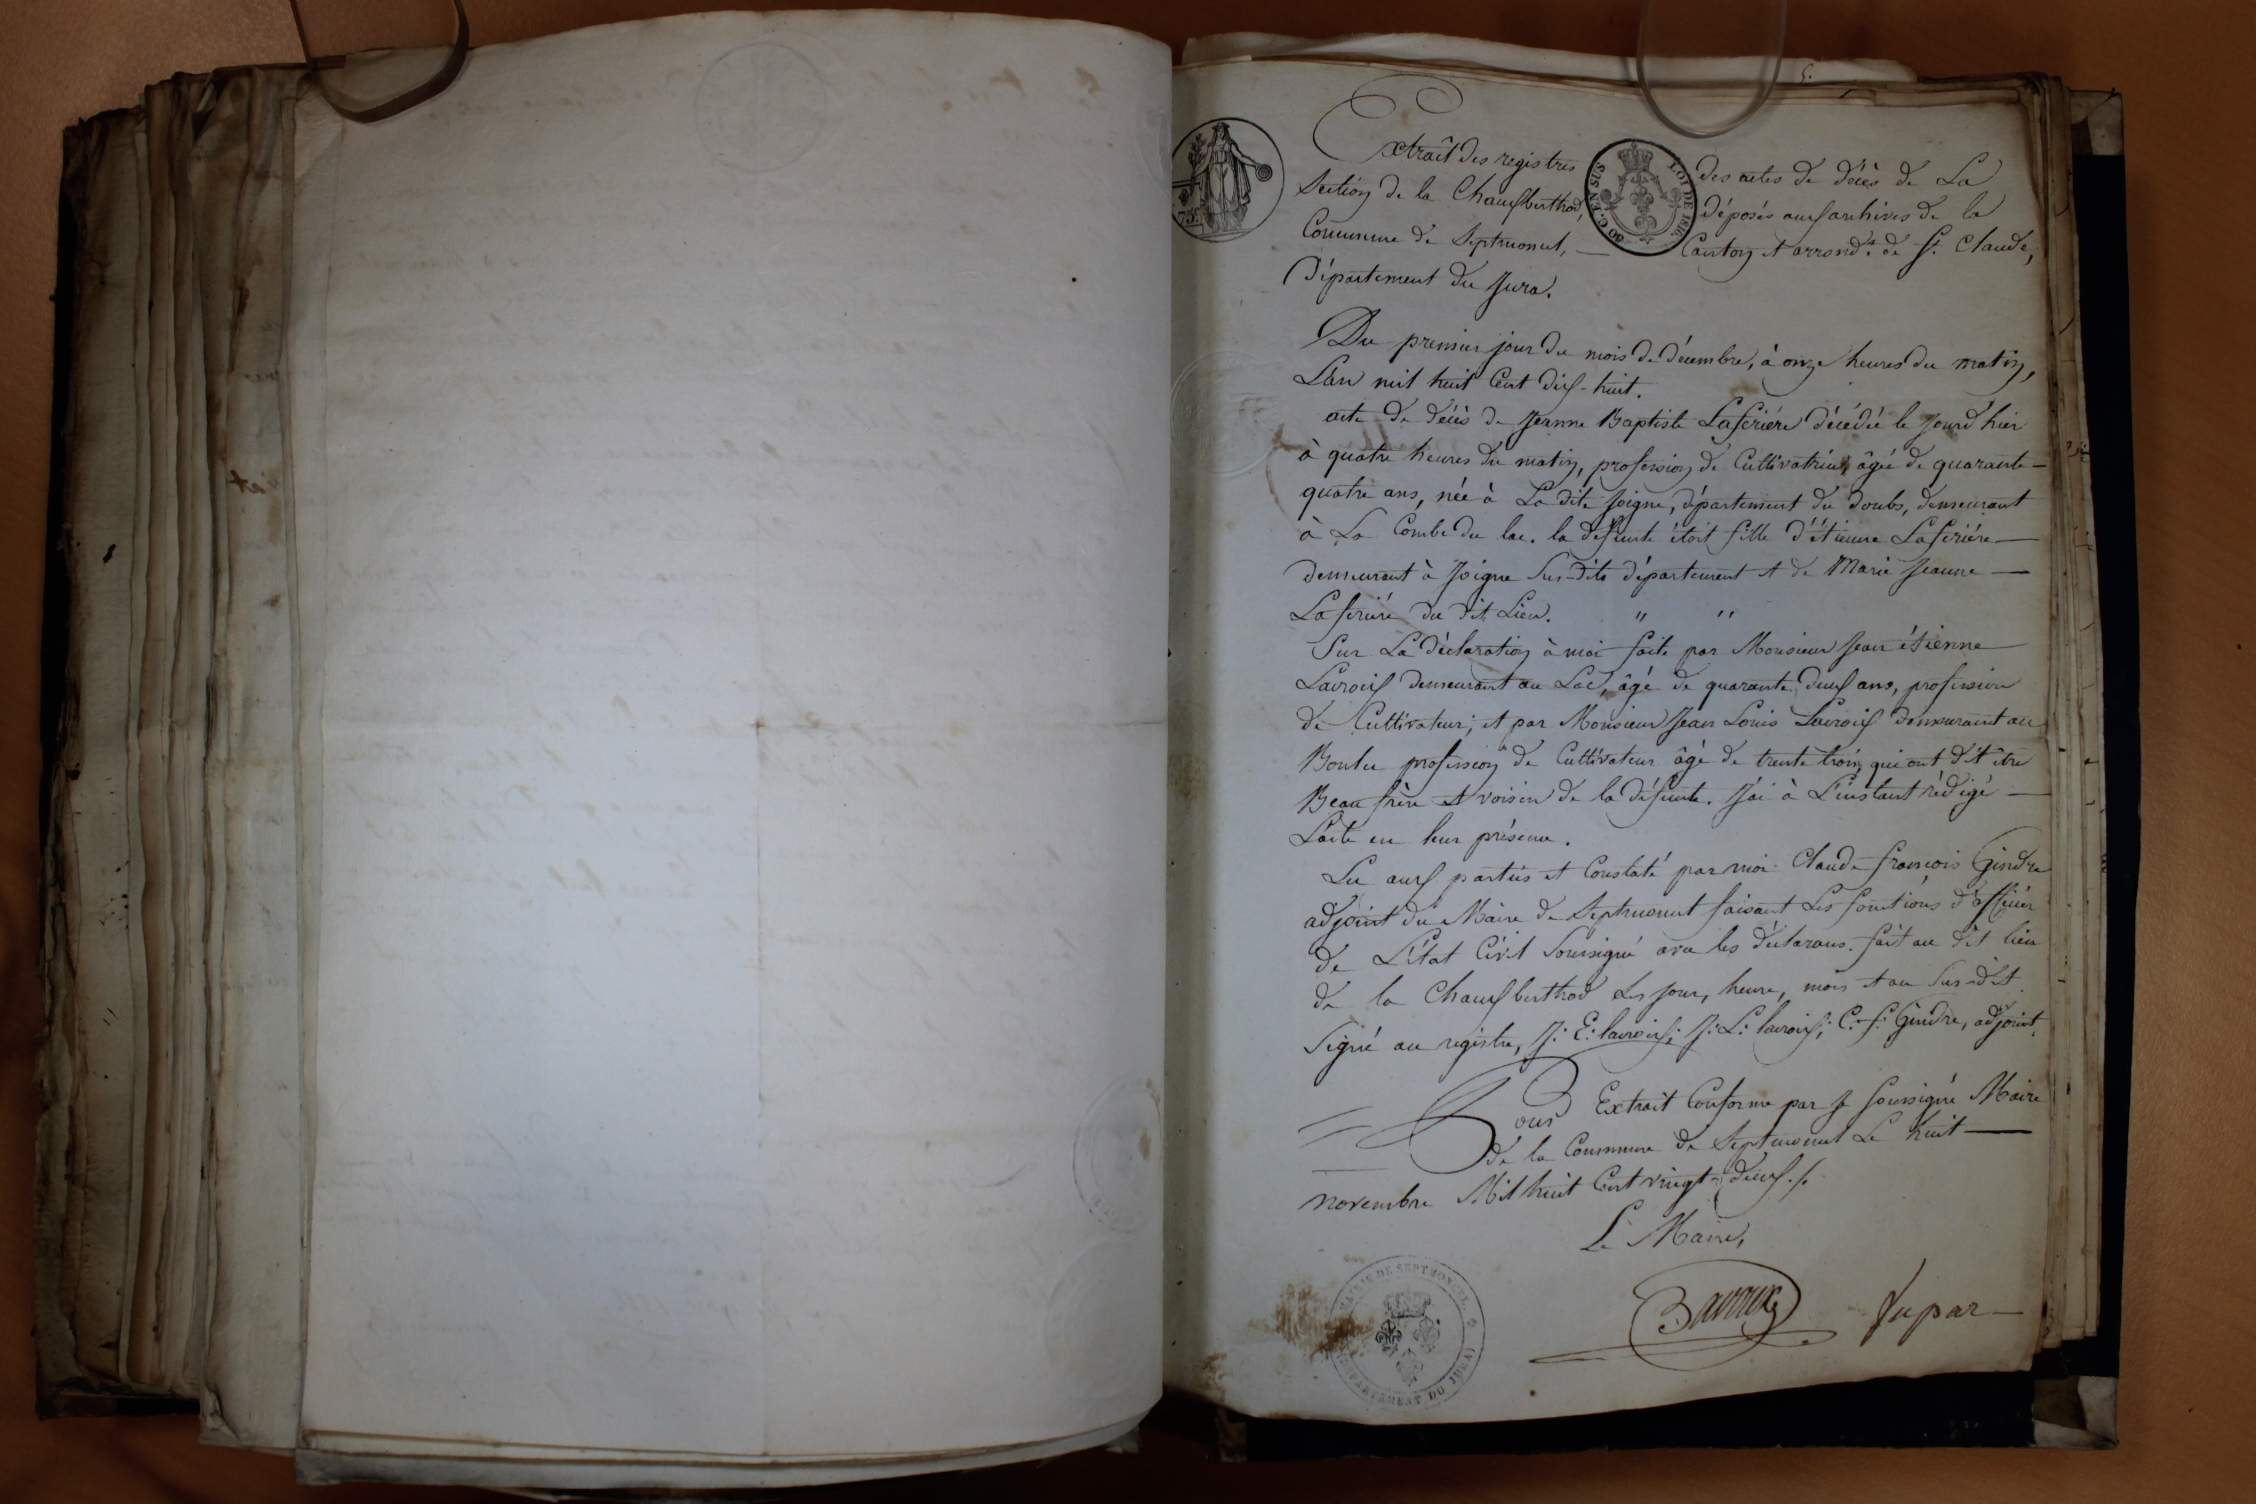 Extrait des registres des actes de décès de La
Section de la Chaux berthod, déposés aux archives de la
Commune de Septmoncel, — Canton et arrond.t de St. Claude,
Département du Jura.
75 c.
60 C. EN SUS
LOI DE 1816.
Du premier jour du mois de décembre, à onze heures du matin,
L'an mil huit Cent dix-huit.
acte de décès de Jeanne Baptiste Laferiére décédée le jourd'hier
à quatre heures du matin, profession de Cultivatrice, âgée de quarante-
quatre ans, née à La dite Joigne, département du doubs, demeurant
à La Combe du lac. la défunte étoit fille d'étienne Laferiére —
demeurant à Joigne Sus-dits département et de Marie Jeanne —
Laferiére du dit Lieu. " "
Sur La déclaration à moi faite par Monsieur Jean étienne
Lavroix demeurant au Lac, âgé de quarante deux ans, profession
de Cultivateur; et par Monsieur Jean Louis Lavroix demeurant au
Boulu profession de Cultivateur âgé de trente trois, qui ont dit être
Beau frère et voisin de la défunte. J'ai à L'instant rédigé —
L'acte en leur présence.
Lu aux parties et Constaté par moi Claude françois Gindre
adjoint du Maire de Septmoncel faisant Les fonctions d'officier
de L'état Civil Soussigné avec les déclarans. fait au dit lieu
de la Chaux berthod Les jour, heure, mois et an Sus-dit.
Signé au registre, J: E: lavroix; J: L: lavroix; C: f: Gindre, adjoint.
Pour Extrait Conforme par Je Soussigné Maire
de la Commune de Septmoncel Le huit —
novembre Mil huit Cent vingt-deux ./.
Le Maire,
MAIRIE DE SEPTMONCEL
(DÉPARTEMENT DU JURA)